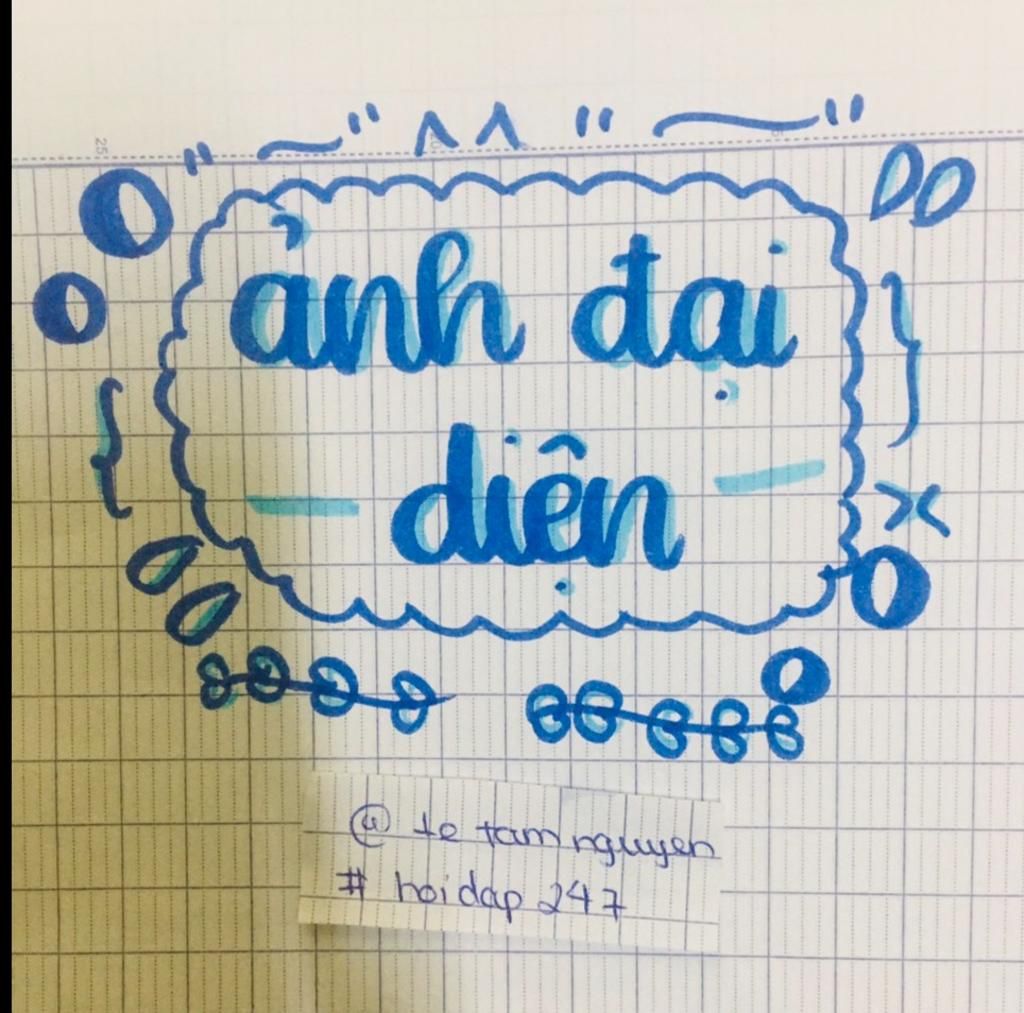 ảnh đại
diện
@ te tam nguyen
# hoidap 247